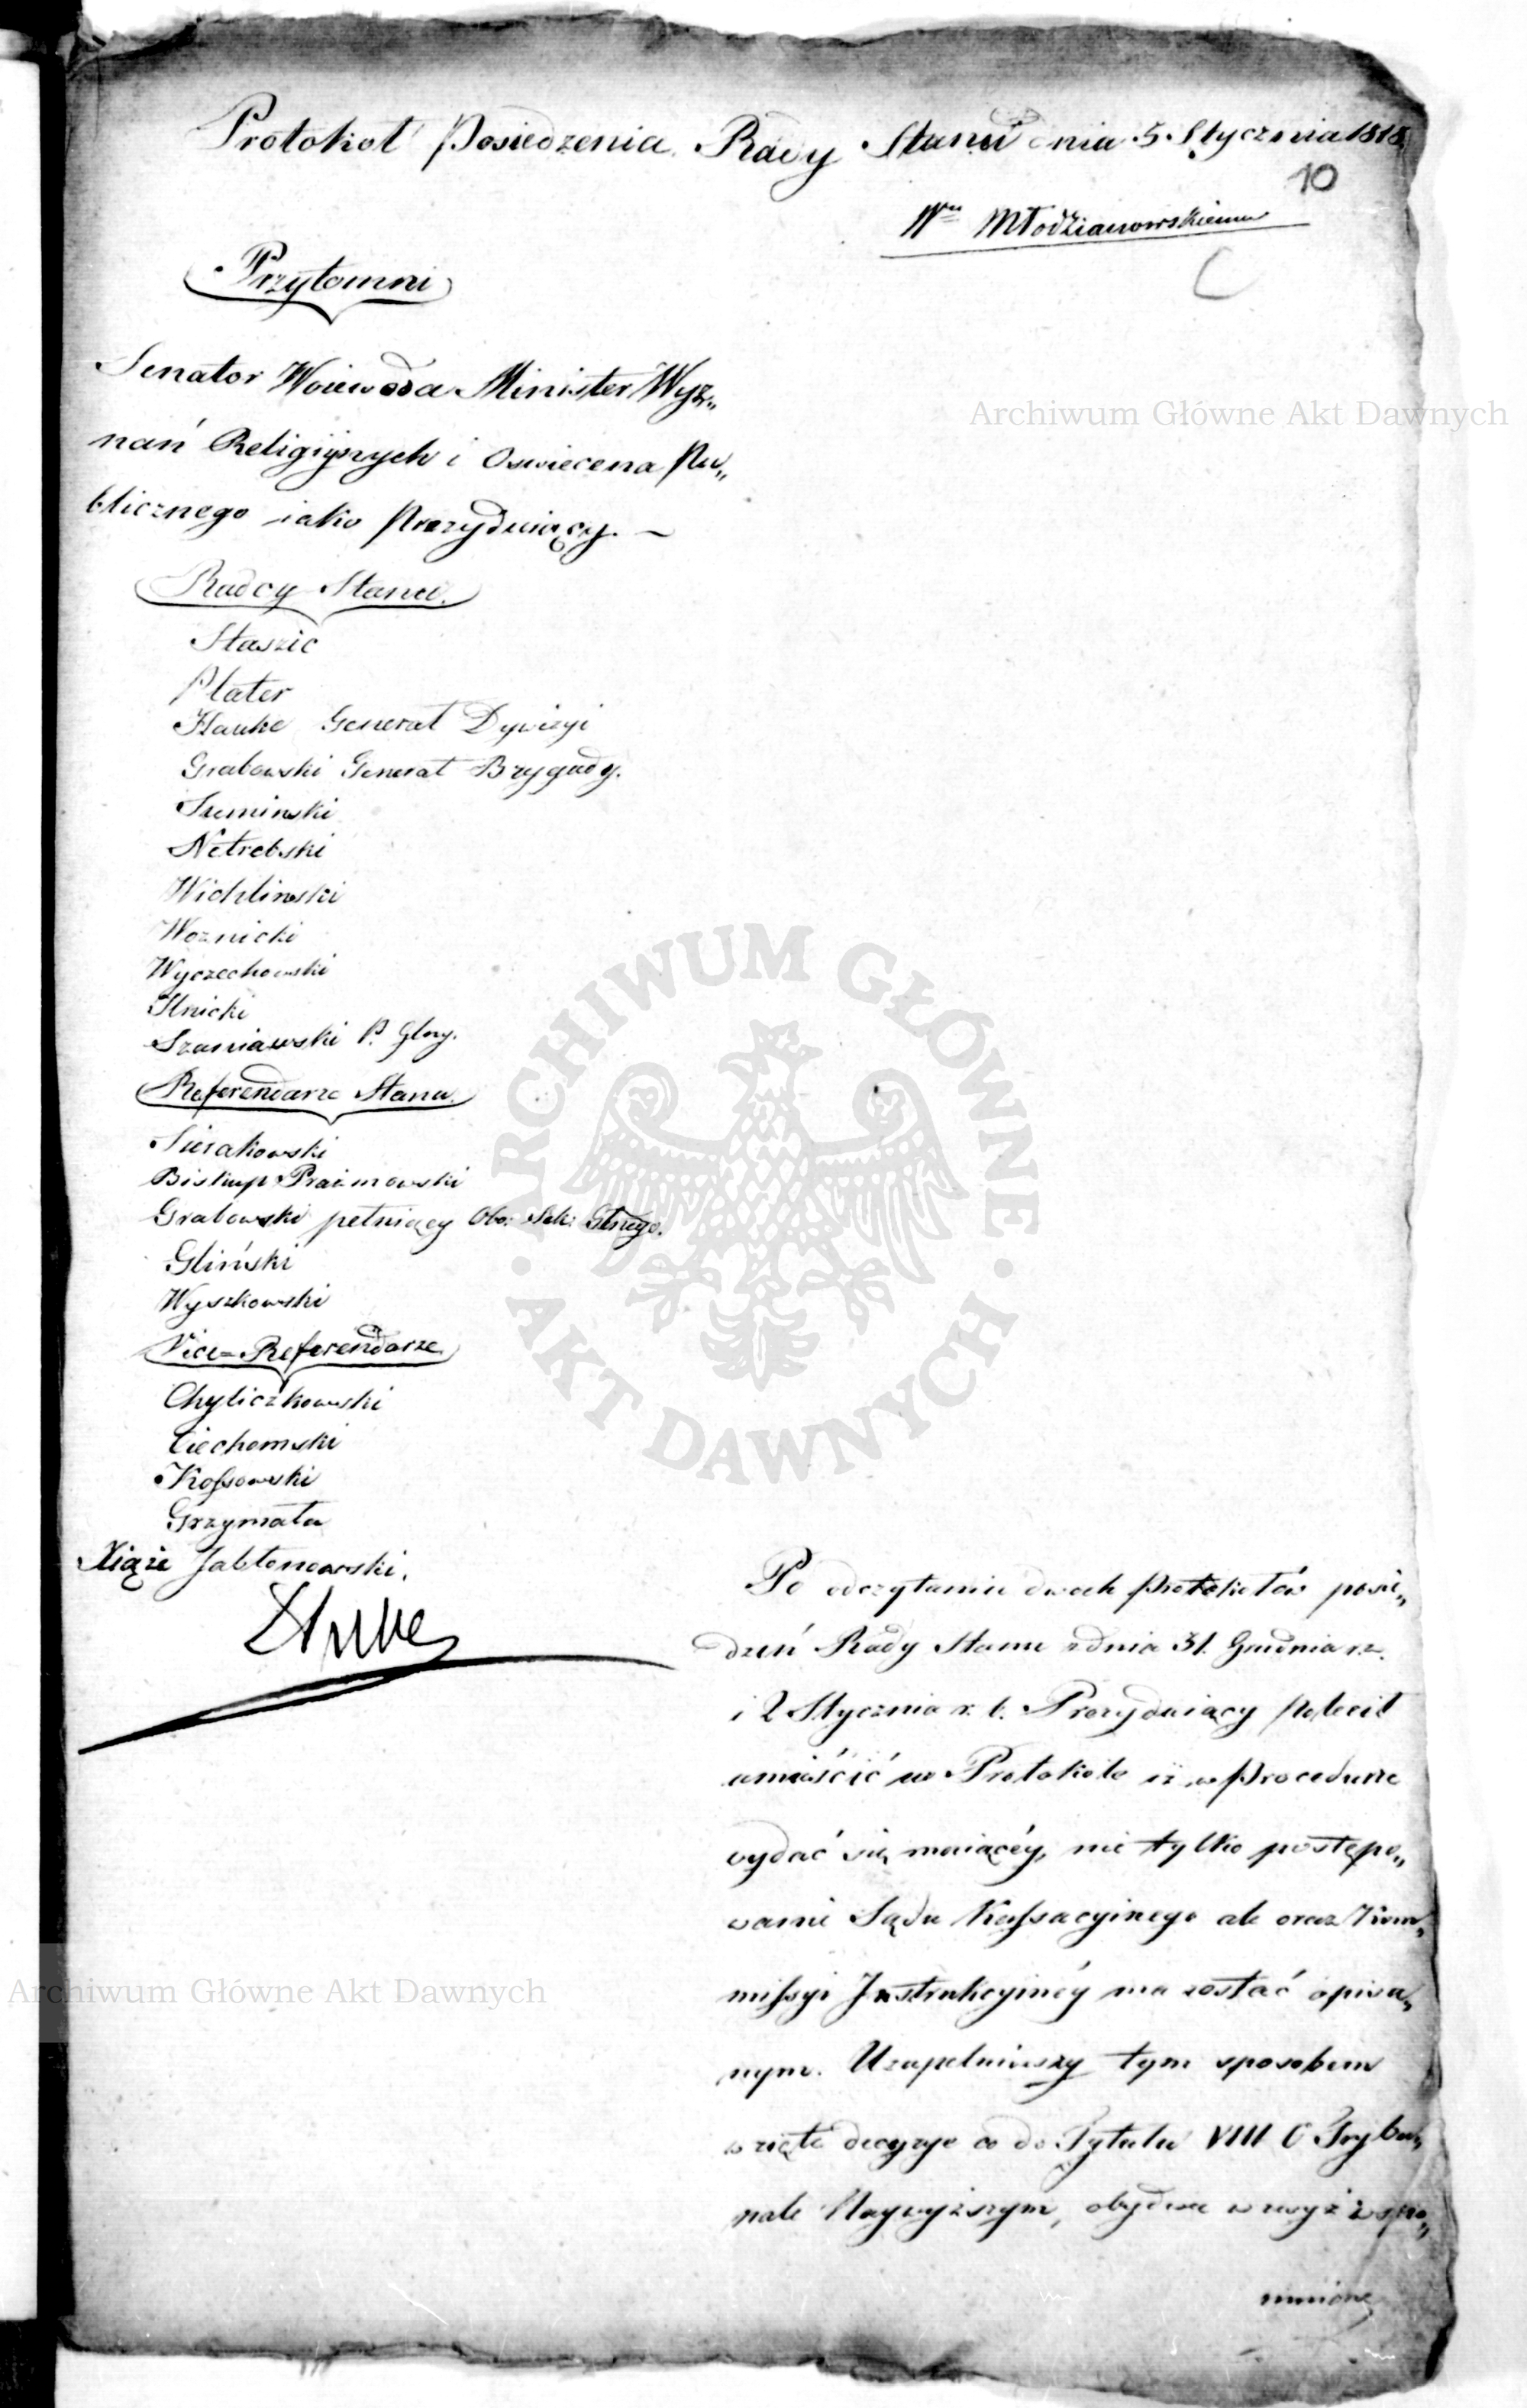 Protokoł Posiedzenia Rady Stanu dnia 5. Stycznia 1818
10
Wu Młodzianowskiemu
C
Przytomni
Senator Woiewoda Minister Wyz„
nań Religiynych i Oswiecena Pu„
blicznego iako Prezyduiący. –
Radcy Stanu.
Staszic
Plater
Hauke Generał Dywizyi
Grabowski Generał Brygady.
Suminski
Netrebski
Wichlinski
Woznicki
Wyczechowski
Ilnicki
Szaniawski P. Glny.
Referendarze Stanu.
Sierakowski
Biskup Prazmowski
Grabowski pełniący Obo: Sek: Glnego.
Gliński
Wyszkowski
Vice=Referendarze.
Chyliczkowski
Ciechomski
Kossowski
Grzymała
Xiąże Jabłonowski.
Po odczytaniu dwoch Protokołów posie„
dzeń Rady Stanu z dnia 31. Grudnia r. z.
i 2 Stycznia r. b. Prezyduiący polecił
umieścić w Protokole iż w Procedurze
wydać się maiącéy, nie tylko postępo„
wanie Sądu Kassacyinego ale oraz Kom„
missyi Instrukcyinéy ma zostać opisa„
nym. Uzupełniwszy tym sposobem
wzięte decyzye co do Tytułu VIII O Trybu„
nale Naywyższym, obydwa wzwyż wspo„
mnione
Archiwum Główne Akt Dawnych
ARCHIWUM GŁÓWNE
AKT DAWNYCH
Archiwum Główne Akt Dawnych